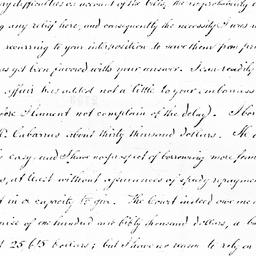 difficulties on account of the bills, the responsibility
any relief here, and consequently the necessity I was
recurring to your interposition to save them from pro
as yet been favored with your answer. I can readily
affair has added not a little to your embarrass
fore I lament not complain of the delay). I bor
Cabarrus about thirty thousand dollars. He
easy, and I have no prospect of borrowing more from
at least without assurances of speedy repayment
in a capacity to give. The Court indeed owe me
of one hundred and fifty thousand dollars, a b
25,615 Dollars; but I have no reason to rely on